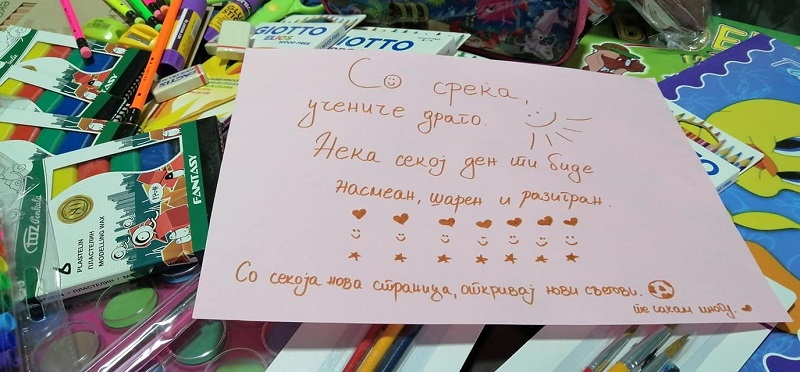 GIOTTO
ELIOS
WOOD FREE
GIOTTO
Со среќа,
учениче драго.
Нека секој ден ти биде
насмеан, шарен и разигран.
Со секоја нова страница, откривај нови светови.
те сакам многу.
PLASTELIN
ПЛАСТЕЛИН
MODELLING WAX
FANTASY